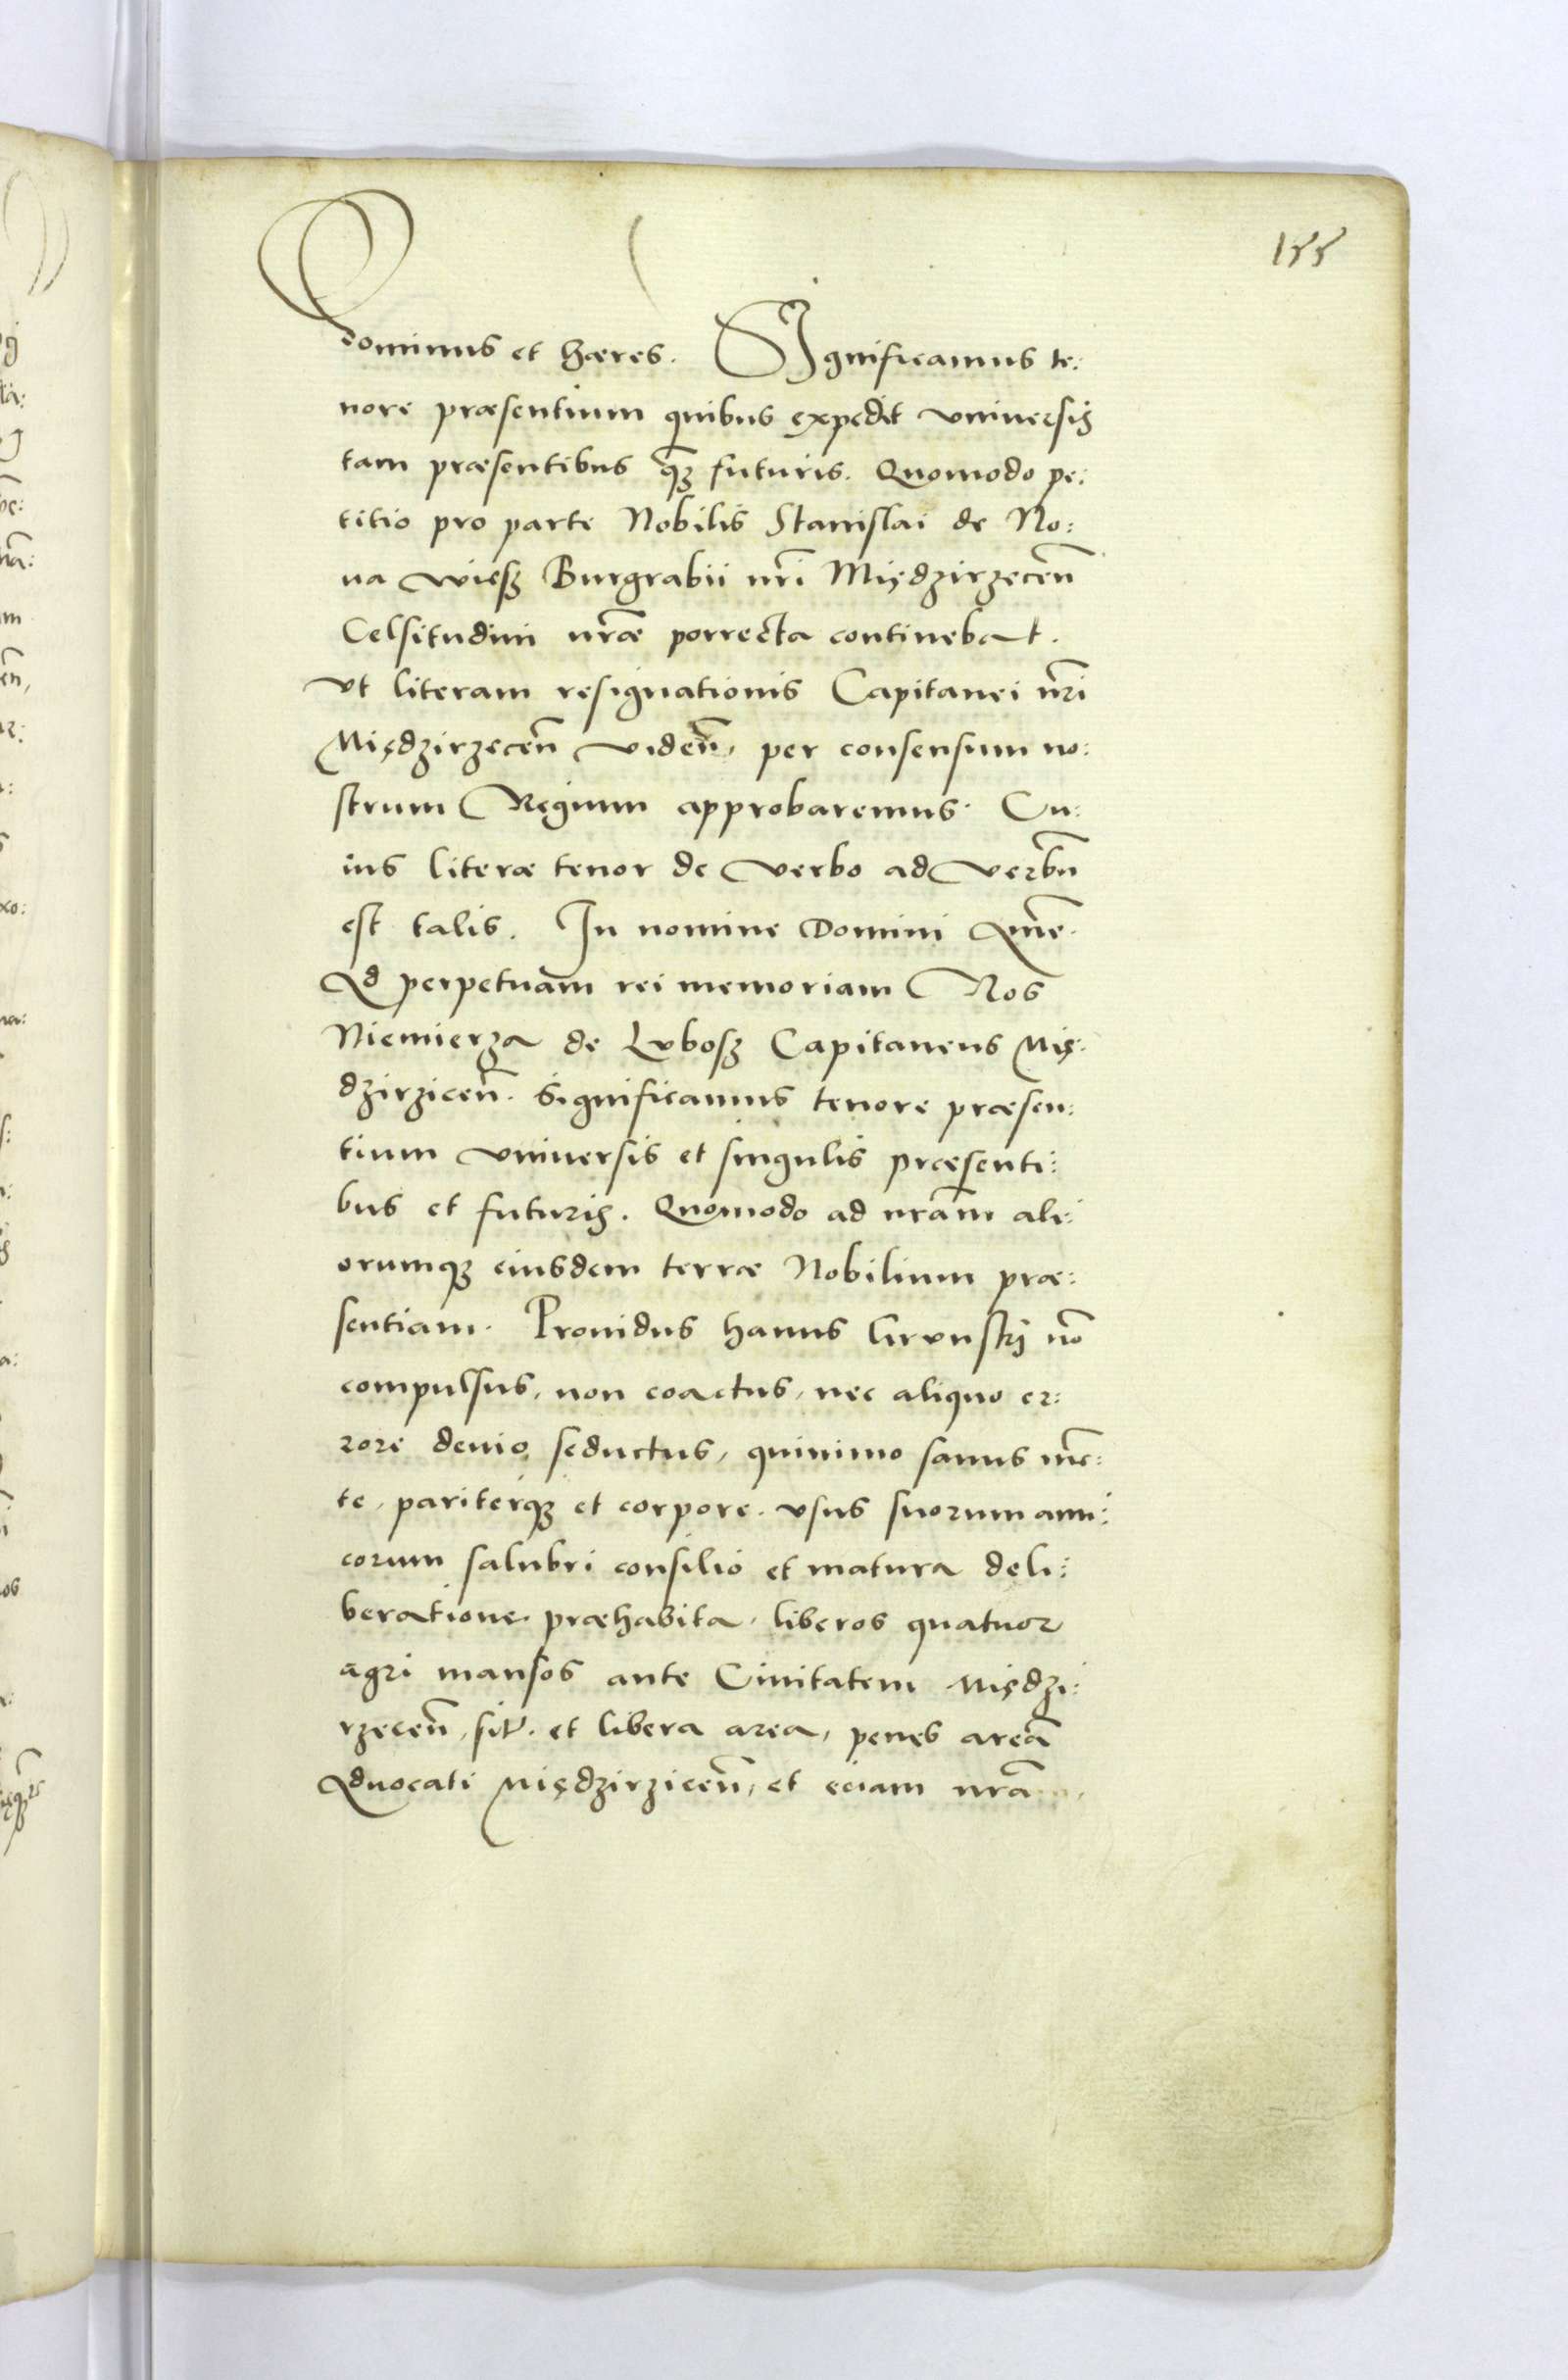 155
dominus et hæres. SIgnificamus te:
nore præsentium quibus expedit vniuersis
tam præsentibus q̃ȝ futuris. Quomodo pe:
titio pro parte Nobilis Stanislai de No:
ua wiesß Burgrabii nr̃i Międzirzecen̄
Celsitudini nrãe porrecta continebat.
Vt literam resignationis Capitanei nr̃i
Międzirzecen̄ viden̄, per consensum no:
strum Regium approbaremus. Cu:
ius literæ tenor de verbo ad verbũ
est talis. In nomine Domini Amẽ.
Ad perpetuam rei memoriam Nos
Niemierza de Lvbosß Capitaneus Mię:
dzirzicen̄. Significamus tenore præsen:
tium vniuersis et singulis præsenti:
bus et futuris. Quomodo ad nrãm ali:
orumqȝ eiusdem terræ Nobilium præ:
sentiam. Prouidus hanus Grvnskij nõ
compulsus, non coactus, nec aliquo er:
rore deuio seductus, quinimo sanus mẽ:
te, pariterqȝ et corpore. vsus suorum ami:
corum salubri consilio et matura deli:
beratione præhabita, liberos quatuor
agri mansos ante Ciuitatem Międzi:
rzecen̄, sit̃. et libera area, penes areã
Aduocati Międzirzicen̄, et eciam nrã